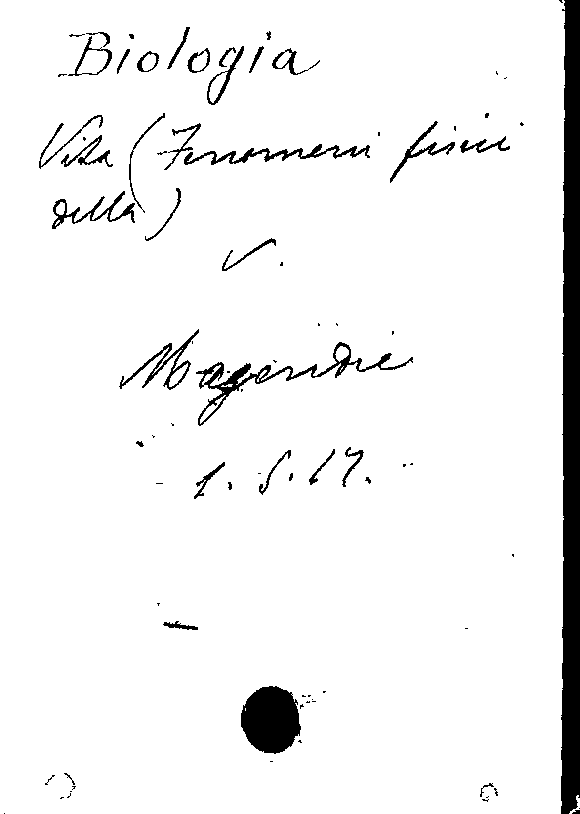 Biologia
Vita (Fenomeni fisici
della)
V.
Magendie
1. 5. 17.